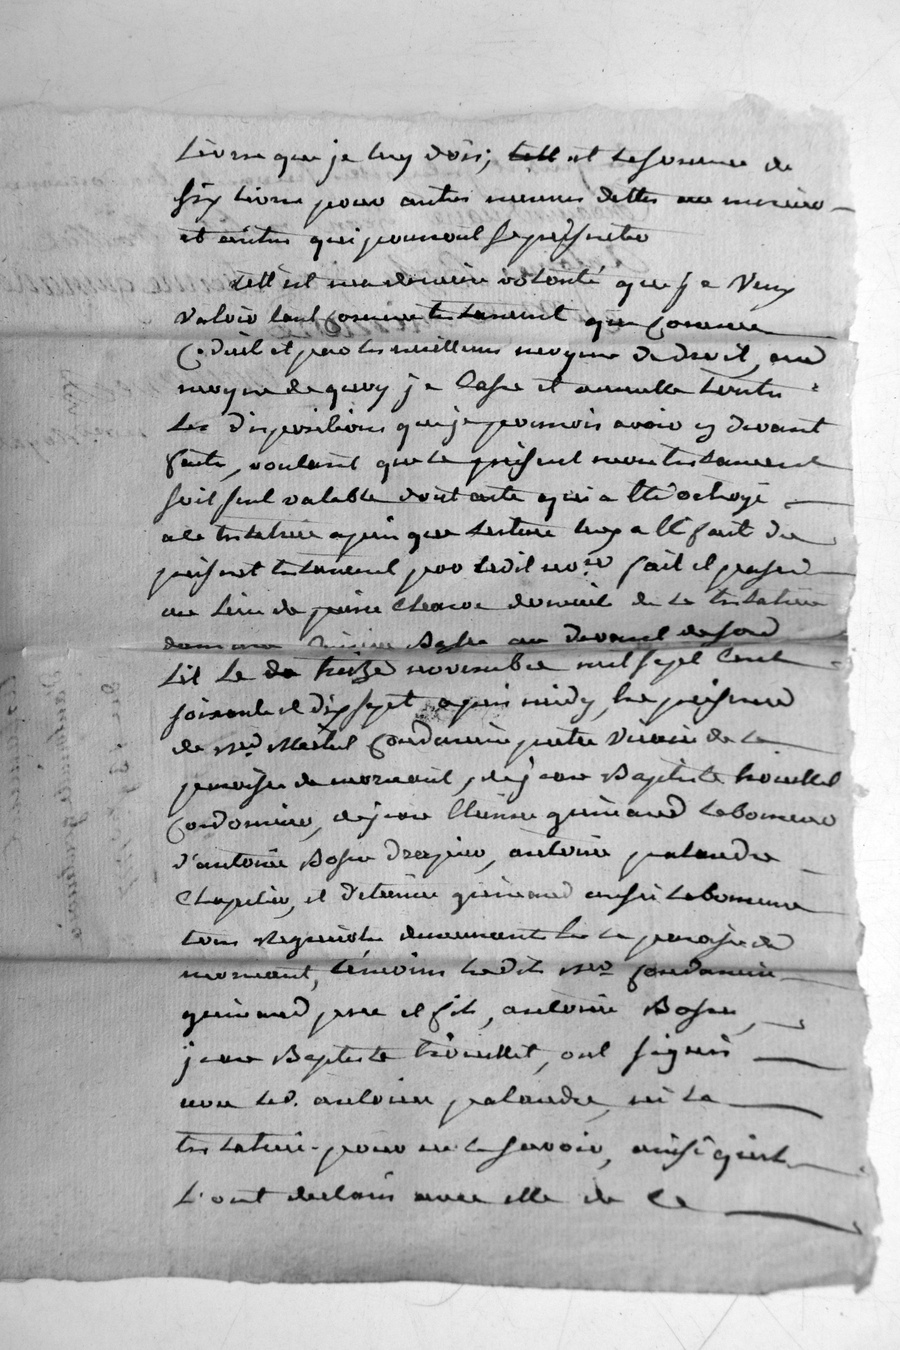 livres que je luy dois; tell et la somme de
six livres pour autres menues dettes au
et autres qui pourront se présenter
tell est ma derniere volonté que je veux
valoir tant comme testament que comme
Codicil et par les meilleurs moyens de droit, au
moyen de quoy je Casse et annulle toutes
les dispositions que je pourrois avoir cy devant
faites, voulant que le présent mon testament
soit seul valable dont acte qui a été octroyé
a la testatrice apres que lecture luy a été fait du
présent testament par ledit no.re fait et passé
au lieu de domicile de la testatrice
au devant de son
lit le de treize novembre mil sept cent
soixante et dix sept apres midy, en présence
de Condamin prêtre vicaire de la
paroisse de mornant, de jean Baptiste trouillet
Cordonnier, de jean Etienne guinand laboureur
d'antoine Bosse drapier, antoine palandre
Chapelier, et d'etienne guinand aussi laboureur
tous requis demeurants en la paroisse de
mornant, témoins ledit Condamin
guinand pere et fils, antoine Bosse,
jean Baptiste trouillet, ont signés
non led. antoine palandre, ni la
testatrice pour ne le savoir, ainsi qu'ils
l'ont declaré avec elle de ce